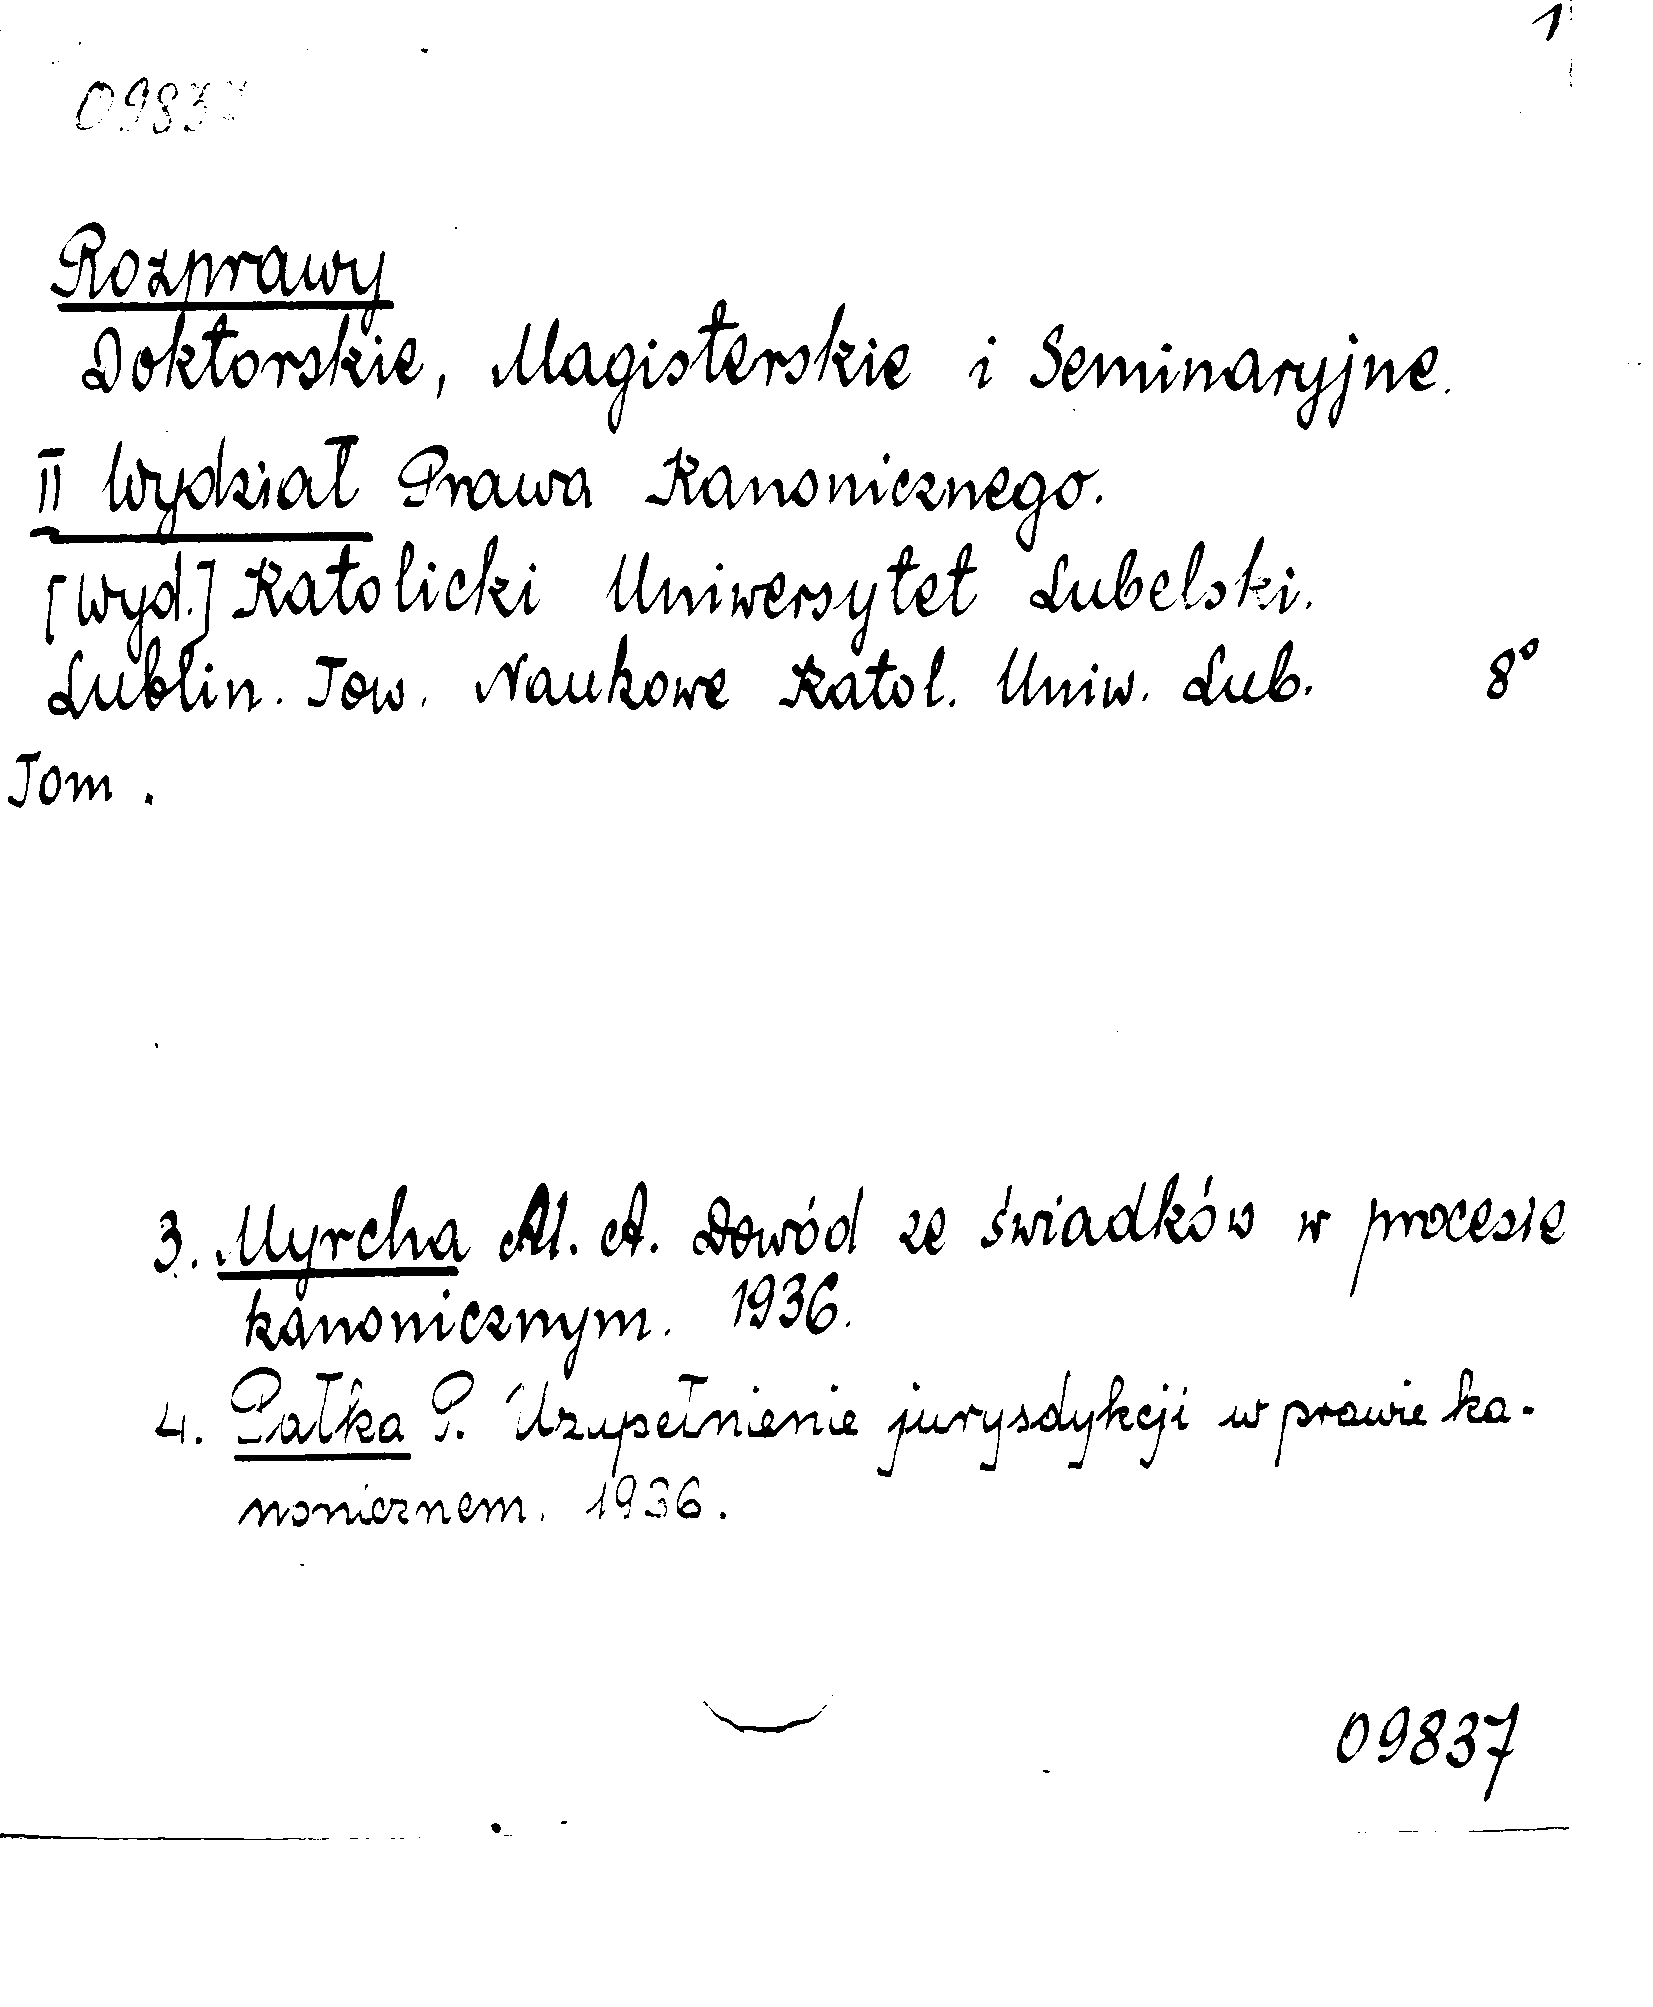 1
09837
Rozprawy
Doktorskie, Magisterskie i Seminaryjne.
II Wydział Prawa Kanonicznego.
[Wyd.] Katolicki Uniwersytet Lubelski.
Lublin. Tow. Naukowe Katol. Uniw. Lub. 8°
Tom .
3. Myrcha Al. A. Dowód ze świadków w procesie
kanonicznym. 1936.
4. Pałka P. Uzupełnienie jurysdykcji w prawie ka-
nonicznem. 1936.
09837